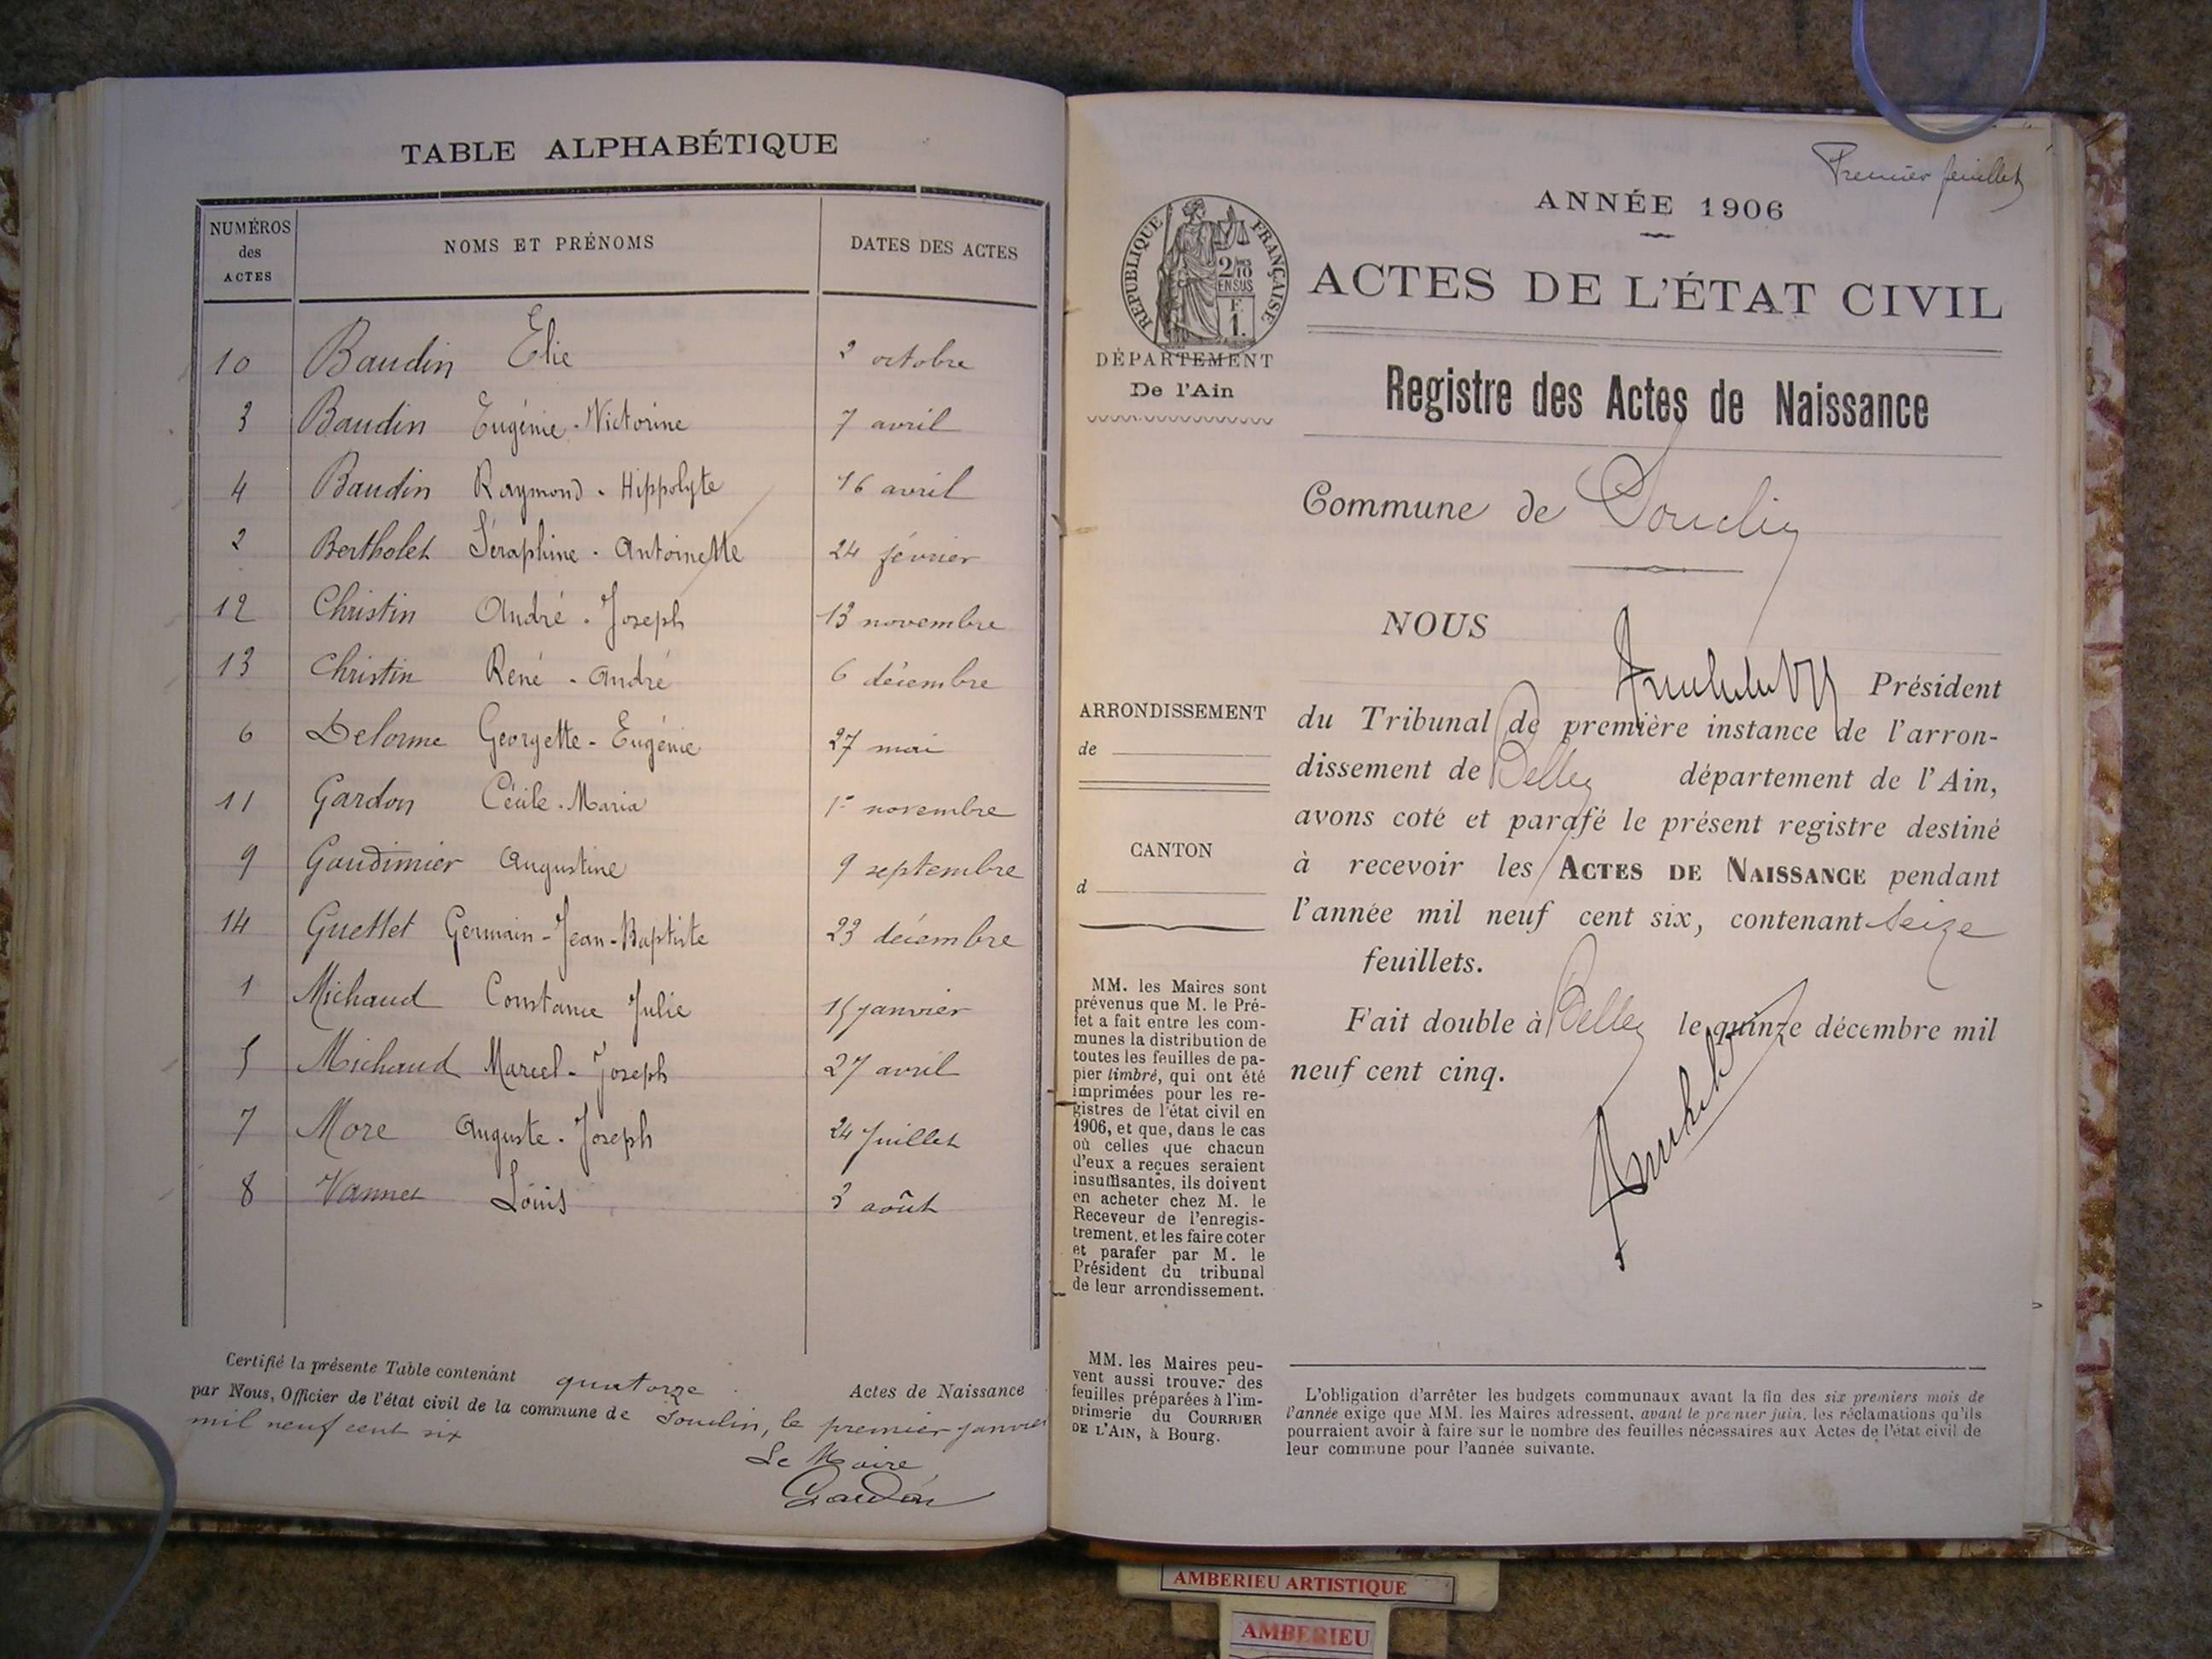 TABLE ALPHABÉTIQUE
NUMÉROS des ACTES NOMS ET PRÉNOMS DATES DES ACTES
10 Baudin Elie 2 octobre
3 Baudin Eugénie-Victorine 7 avril
4 Baudin Raymond-Hippolyte 16 avril
2 Bertholet Séraphine-Antoinette 24 février
12 Christin André-Joseph 13 novembre
13 Christin René-André 6 décembre
6 Delorme Georgette-Eugénie 27 mai
11 Gardon Cécile-Maria 1er novembre
9 Gaudimier Augustine 9 septembre
14 Guettet Germain-Jean-Baptiste 23 décembre
1 Michaud Constance Julie 15 janvier
5 Michaud Marcel-Joseph 27 avril
7 More Auguste-Joseph 24 Juillet
8 Vannet Louis 3 août
Certifié la présente Table contenant quatorze Actes de Naissance
par Nous, Officier de l'état civil de la commune de Souclin, le premier janvier
mil neuf cent six
Le Maire
Premier feuillet
ANNÉE 1906
ACTES DE L'ÉTAT CIVIL
REPUBLIQUE FRANÇAISE
2/10
EN SUS
F.
1.
DÉPARTEMENT
De l'Ain
Registre des Actes de Naissance
Commune de Souclin
NOUS
Président
du Tribunal de première instance de l'arron-
dissement de Belley département de l'Ain,
avons coté et parafé le présent registre destiné
à recevoir les ACTES DE NAISSANCE pendant
l'année mil neuf cent six, contenant seize
feuillets.
Fait double à Belley le quinze décembre mil
neuf cent cinq.
ARRONDISSEMENT
de
CANTON
d
MM. les Maires sont
prévenus que M. le Pré-
fet a fait entre les com-
munes la distribution de
toutes les feuilles de pa-
pier timbré, qui ont été
imprimées pour les re-
gistres de l'état civil en
1906, et que, dans le cas
où celles que chacun
d'eux a reçues seraient
insuffisantes, ils doivent
en acheter chez M. le
Receveur de l'enregis-
trement, et les faire coter
et parafer par M. le
Président du tribunal
de leur arrondissement.
MM. les Maires peu-
vent aussi trouver des
feuilles préparées à l'im-
primerie du COURRIER
DE L'AIN, à Bourg.
L'obligation d'arrêter les budgets communaux avant la fin des six premiers mois de
l'année exige que MM. les Maires adressent, avant le premier juin, les réclamations qu'ils
pourraient avoir à faire sur le nombre des feuilles nécessaires aux Actes de l'état civil de
leur commune pour l'année suivante.
AMBERIEU ARTISTIQUE
AMBERIEU